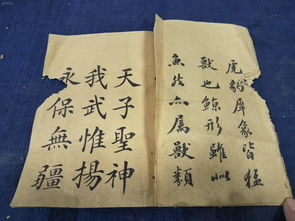 虎豹犀象皆猛
獸也鯨形雖似
魚然亦屬獸類
天子聖神
我武惟揚
永保無疆